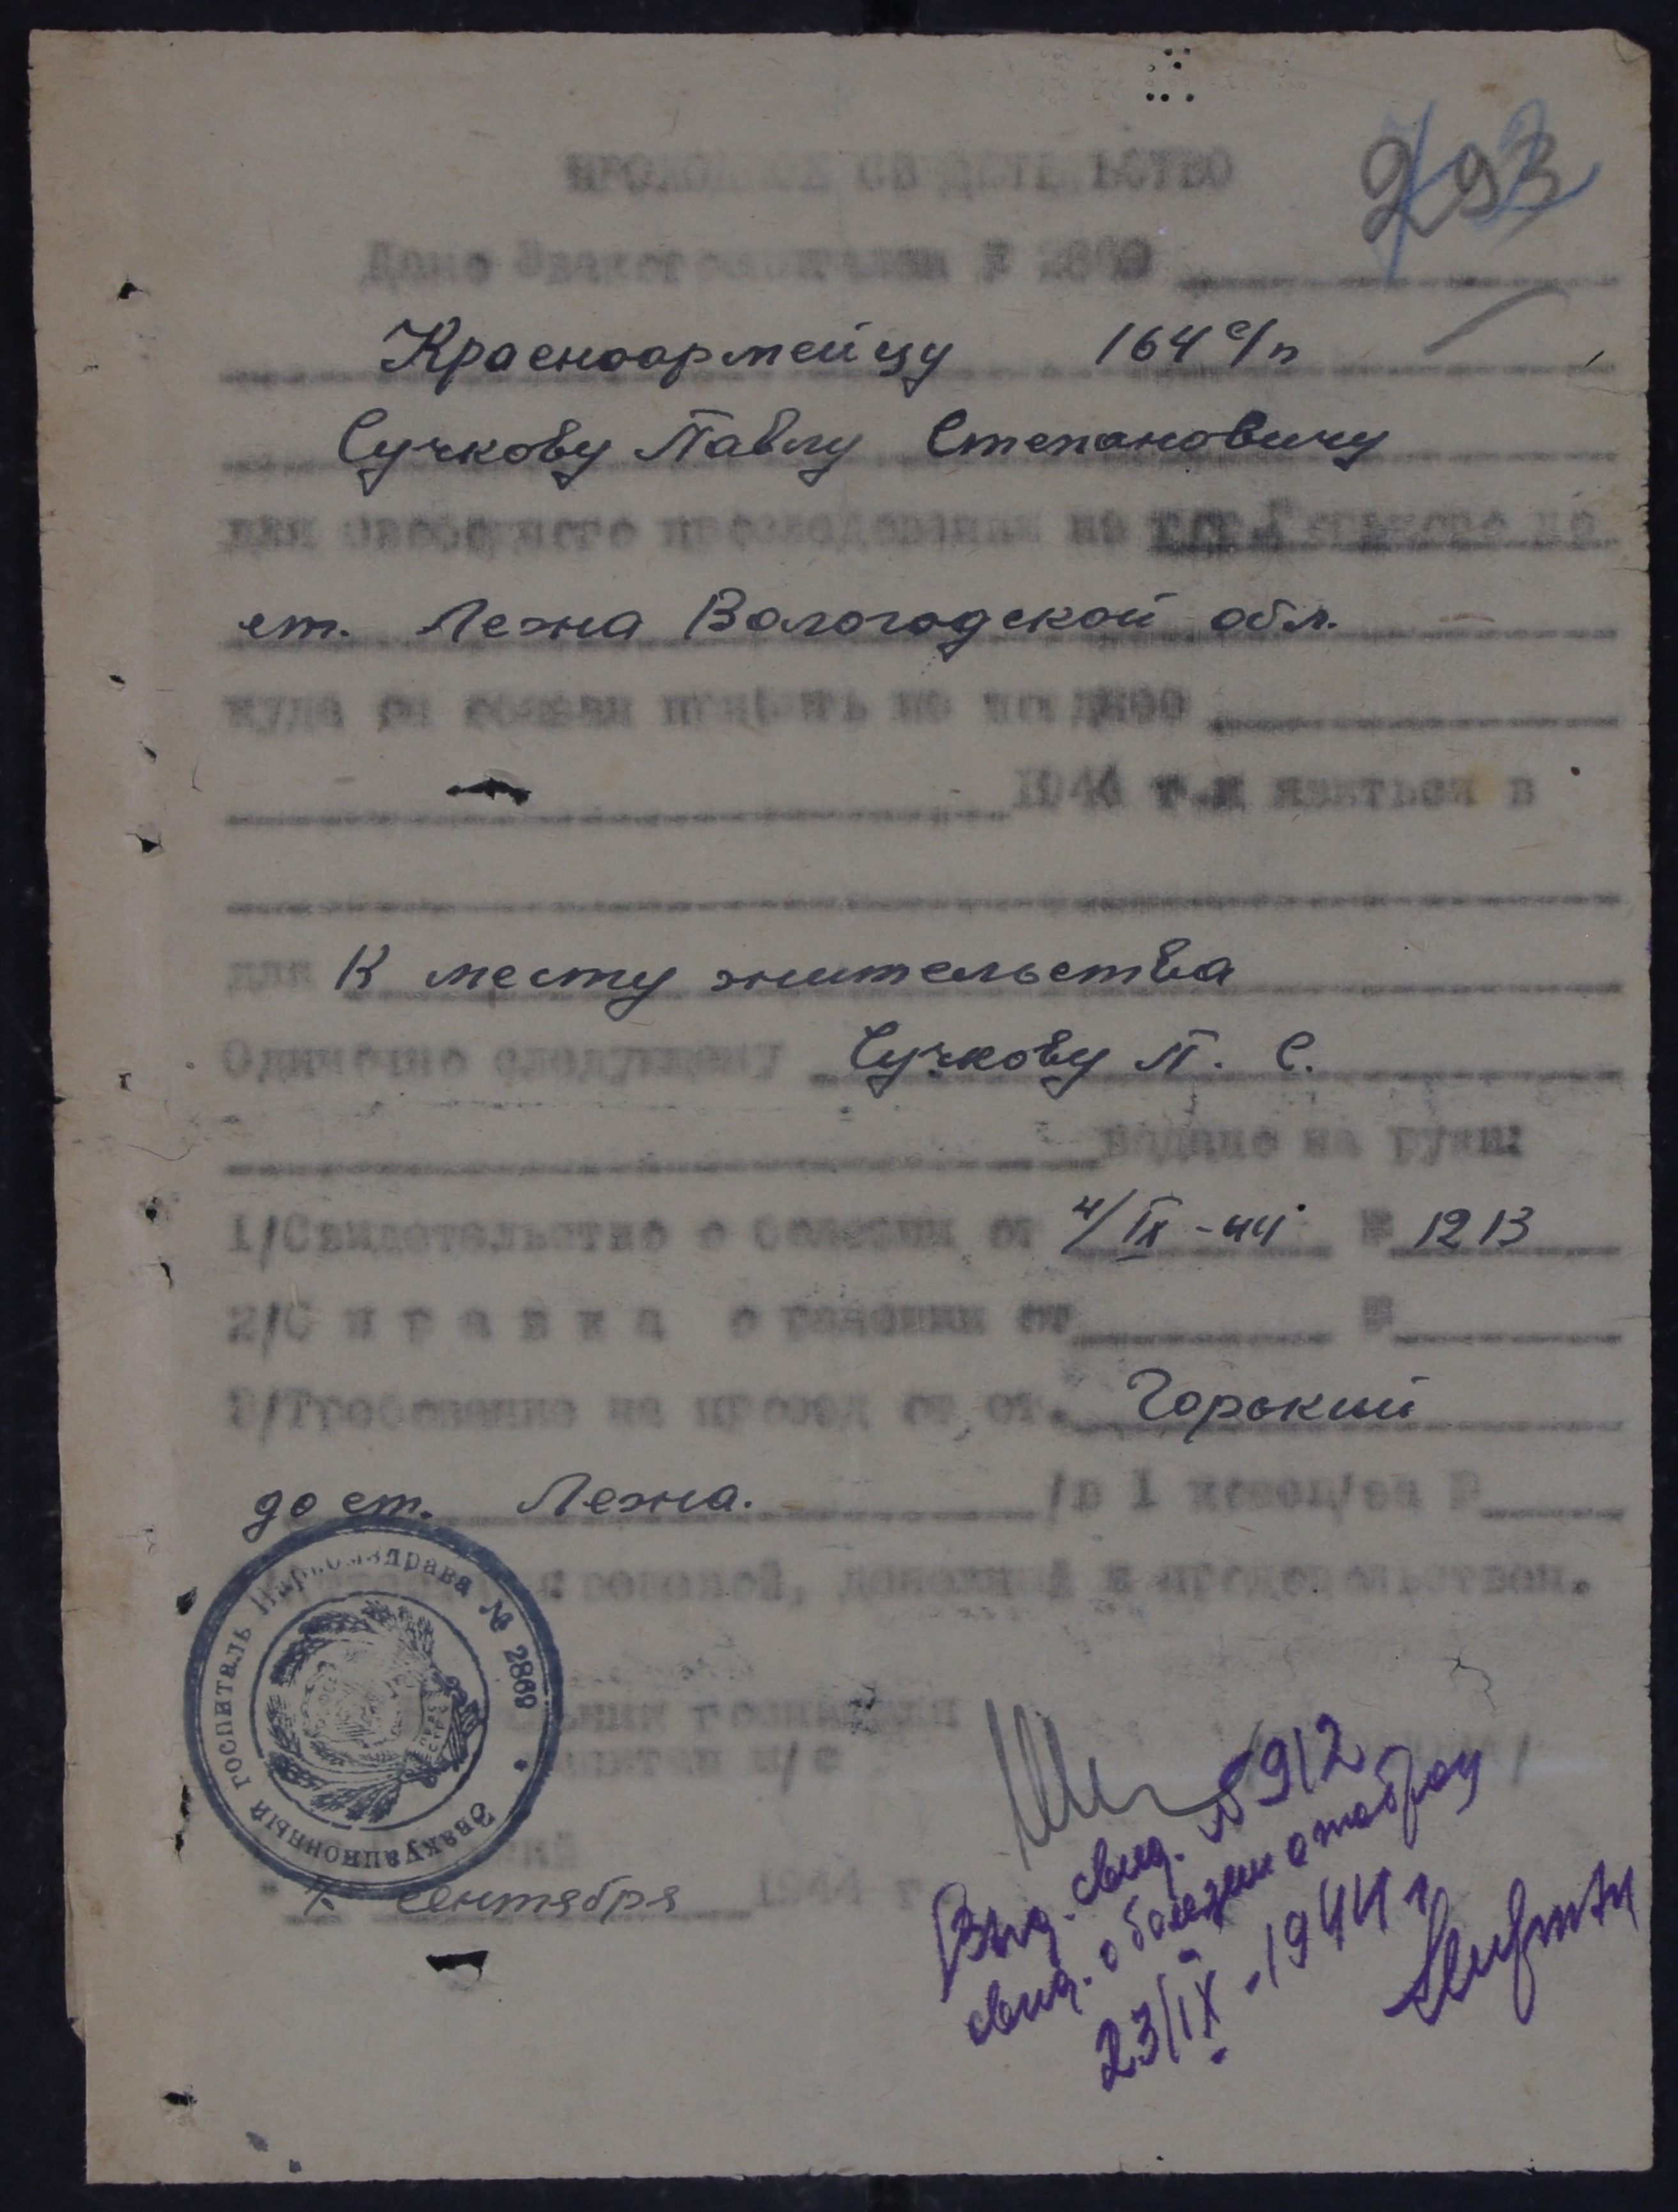 ПРОХОДНОЕ СВИДЕТЕЛЬСТВО
Дано Эвакогоспиталем № 2869
Красноармейцу 164 с/п
Сучкову Павлу Степановичу
для свободного проследования из гор.Горького до
ст. Лежна Вологодской обл.
куда он обязан прибыть не позднее
1944 г.и явиться в
для К месту жительства
Одиночно следующему Сучкову П. С.
выдано на руки:
1/Свидетельство о болезни от 4/IX-44 № 1213
2/С п р а в к а о ранении от №
3/Требование на проезд от ст. Горький
до ст. Лежна. /в 1 конец/за №
одеждой, денежной и продовольствен.
Эвакуационный госпиталь Наркомздрава № 2869
госпиталя
м/с
Выд. свид. № 912
свид. о болезни отобрац
23/IX-1944 г
сентября 1944 г